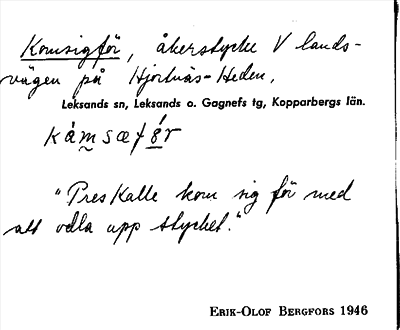 Komsigför, åkerstycke V lands-
vägen på Hjortnäs-Heden,
Leksands sn, Leksands o. Gagnefs tg, Kopparbergs län.
kámsæfǿr
"Pres Kalle kom sig för med
att odla upp stycket."
ERIK-OLOF BERGFORS 1946